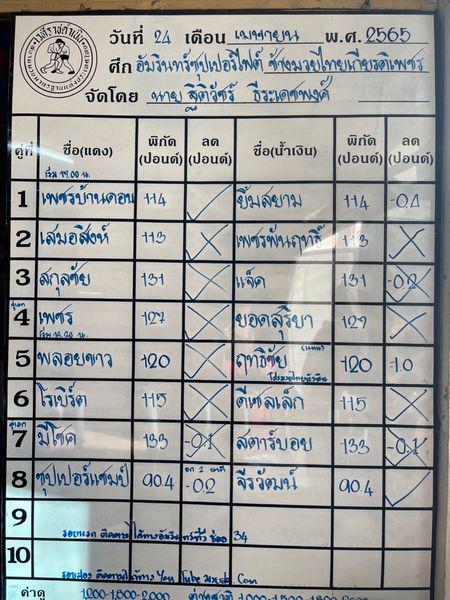 วันที่ 24 เดือน เมษายน พ.ศ. 2565
ศึก อัมรินทร์ซุปเปอร์ไฟต์ ช้างมวยไทยเกียรติเพชร
จัดโดย นาย ฐิติวัชร์ ธีระเดชพงค์
คู่ที่ ชื่อ(แดง) พิกัด (ปอนด์) ลด (ปอนด์) ชื่อ(น้ำเงิน) พิกัด (ปอนด์) ลด (ปอนด์)
1 เพชรบ้านดอน 114 ✓ ยิ้มสยาม 114 -0.4
2 เสมอสิงห์ 113 X เพชรพันฤทธิ์ 113 X
3 สกุลชัย 131 X แจ็ค 131 -0.2
4 เพชร 127 X ยอดสุริยา 129 X
5 พลอยขาว 120 X ฤทธิชัย 120 -1.0
6 โรเบิร์ต 115 X ดีเซลเล็ก 115 X
7 มีโชค 133 -0.1 สตาร์บอย 133 -0.1
8 ซุปเปอร์แชมป์ 90.4 -0.2 จีรวัฒน์ 90.4 ✓
9
รอบแรก ติดตามได้ทางอัมรินทร์ทีวี ช่อง 34
10
ค่าดู 1,000-1,500-2,000